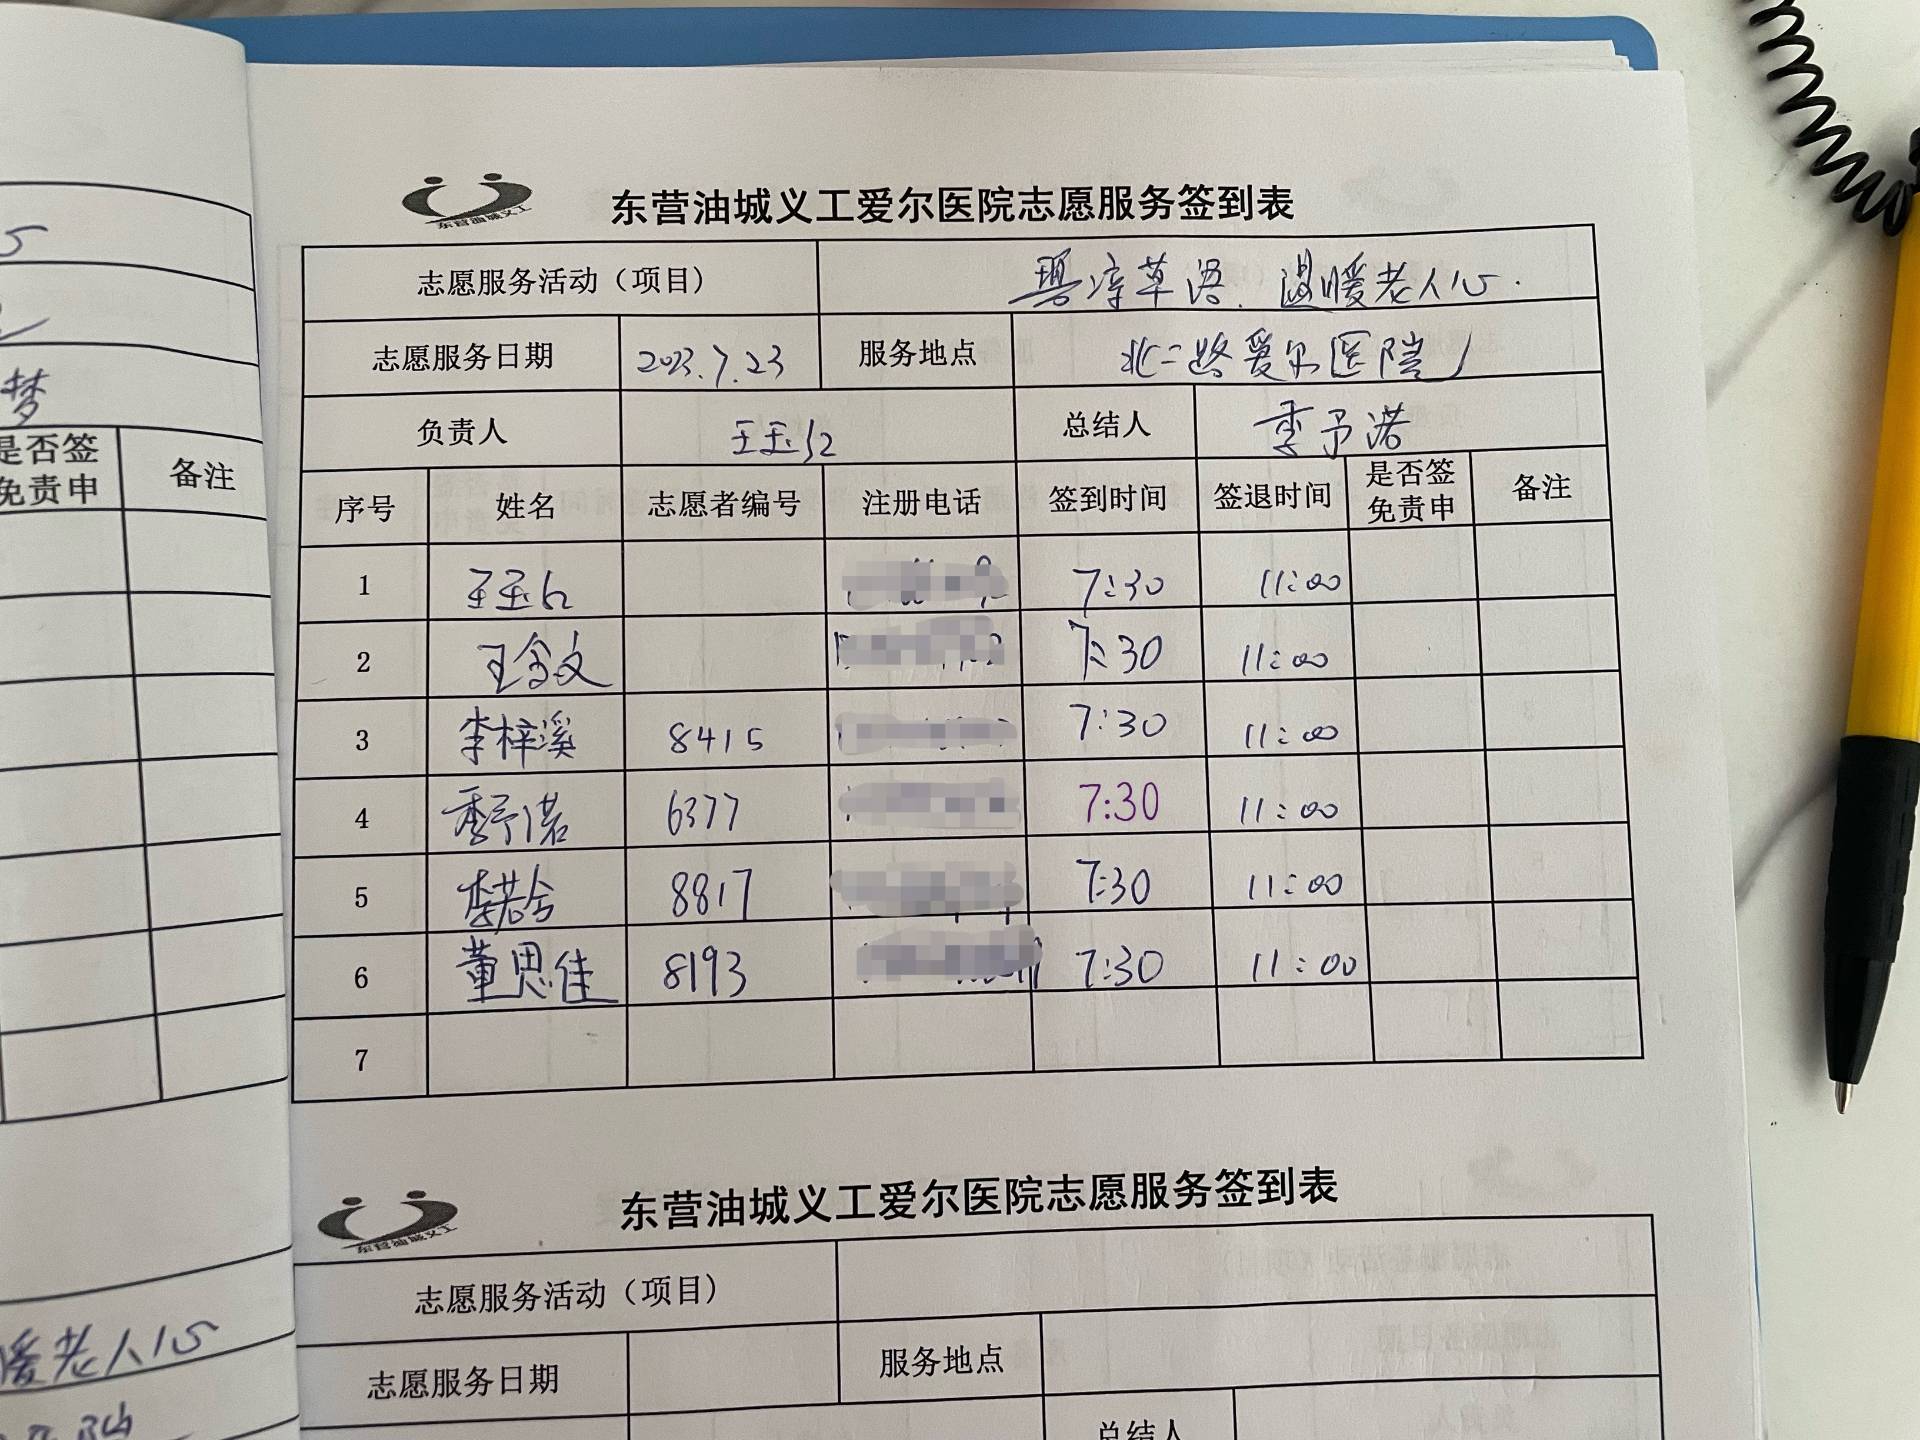 梦
是否签
免责申
备注
暖老人心
东营油城义工
东营油城义工爱尔医院志愿服务签到表
志愿服务活动（项目） 草语. 温暖老人心.
志愿服务日期 2023.7.23 服务地点 北二路爱尔医院
负责人 王玉红 总结人 季予诺
序号 姓名 志愿者编号 注册电话 签到时间 签退时间 是否签免责申 备注
1 王玉红 7:30 11:00
2 王含文 7:30 11:00
3 李梓溪 8415 7:30 11:00
4 季予诺 6377 7:30 11:00
5 李若含 8817 7:30 11:00
6 董思佳 8193 7:30 11:00
7
东营油城义工
东营油城义工爱尔医院志愿服务签到表
志愿服务活动（项目）
志愿服务日期 服务地点
总结人